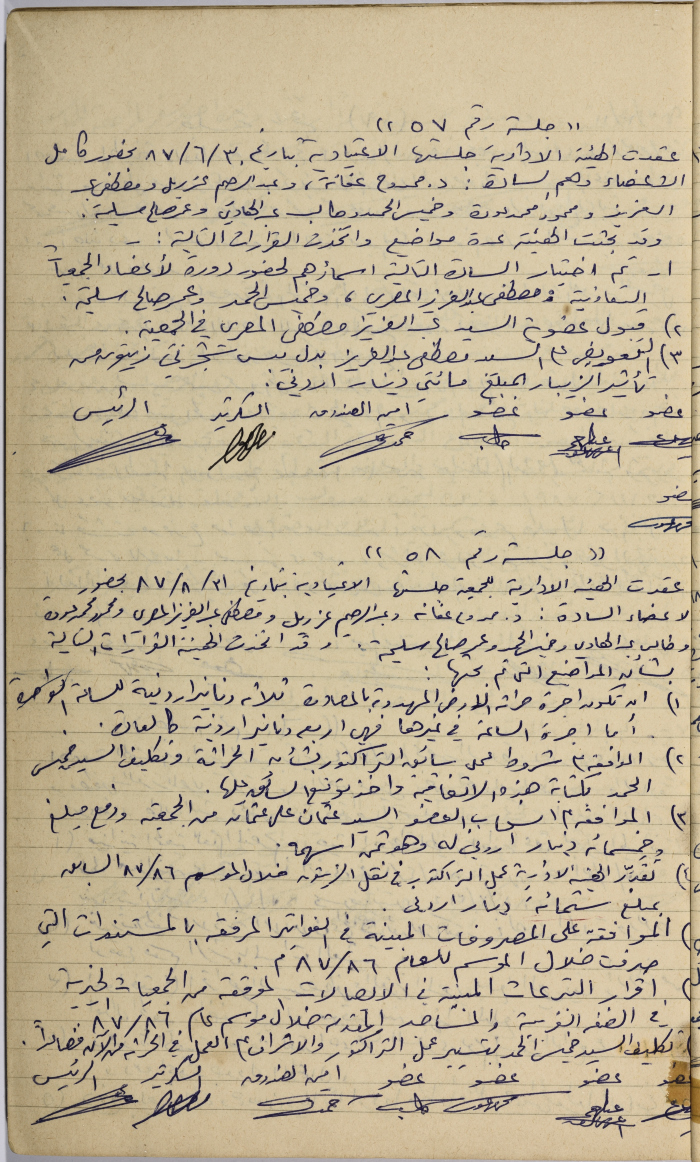 (( جلسة رقم ٢٥٧ ))
عقدت الهيئة الادارية جلستها الاعتيادية بتاريخ ٨٧/٦/٣٠ بحضور كامل
الاعضاء وهم السادة : د. ممدوح عفانة ، وعبدالرحيم عزريل ومصطفى عبد
العزيز ومحمود محمد عودة وخميس الحمد وطالب عبدالهادي وعمر صالح سليمة .
وقد بحثت الهيئة عدة مواضيع واتخذت القرارات التالية : -
١ـ تم اختيار السادة التالية اسماؤهم لحضور دورة لأعضاء الجمعيات
التعاونية مصطفى عبدالعزيز المصري ، وخميس الحمد وعمر صالح سليمة .
٢) قبول عضوية السيد عبدالعزيز مصطفى المصري في الجمعية .
٣) التعويض على السيد مصطفى عبدالعزيز بدل يبس شجرتي زيتون من
تأثير الزيبار المبلغ مائتي دينار اردني .
عضو عضو عضو امين الصندوق السكرتير الرئيس
عضو
(( جلسة رقم ٢٥٨ ))
عقدت الهيئة الادارية للجمعية جلستها الاعتيادية بتاريخ ٨٧/٨/٣١ بحضور
الاعضاء السادة : د. ممدوح عفانة وعبدالرحيم عزريل ومصطفى عبدالعزيز المصري ومحمود محمد عودة
وطالب عبدالهادي وخميس الحمد وعمر صالح سليمة . وقد اتخذت الهيئة القرارات التالية
بشأن المواضيع التي تم بحثها :
١) ان تكون اجرة حراثة الارض المهددة بالمصادرة ثلاثة دنانير اردنية للساعة الواحدة
أما اجرة الساعة في غيرها فهي اربعة دنانير اردنية كالعادة .
٢) الموافقة على شروط عمل سائق التراكتور بشأن الحراثة وتكليف السيد خميس
الحمد بكتابة هذه الاتفاقية واخذ توقيع السائق عليها .
٣) الموافقة على انسحاب العضو السيد عثمان علي عثمان من الجمعية ودفع مبلغ
وخمسمائة دينار اردني له وهو ثمن اسهمه .
٤) تقدير الهيئة الادارية عمل التراكتور في نقل الزيتون خلال الموسم ٨٧/٨٦ السابق
بمبلغ ستمائة دينار اردني .
الموافقة على المصروفات المبينة في الفواتير المرفقة بالمستندات التي
صرفت خلال الموسم للعام ٨٧/٨٦ م
اقرار التبرعات المبينة في الايصالات الموقعة من الجمعيات الخيرية
في الضفة الغربية والمقدمة خلال موسم عام ٨٧/٨٦
تكليف السيد خميس الحمد بتسيير عمل التراكتور والاشراف على العمل في الحراثة من الآن فصاعداً .
عضو عضو عضو عضو امين الصندوق السكرتير الرئيس